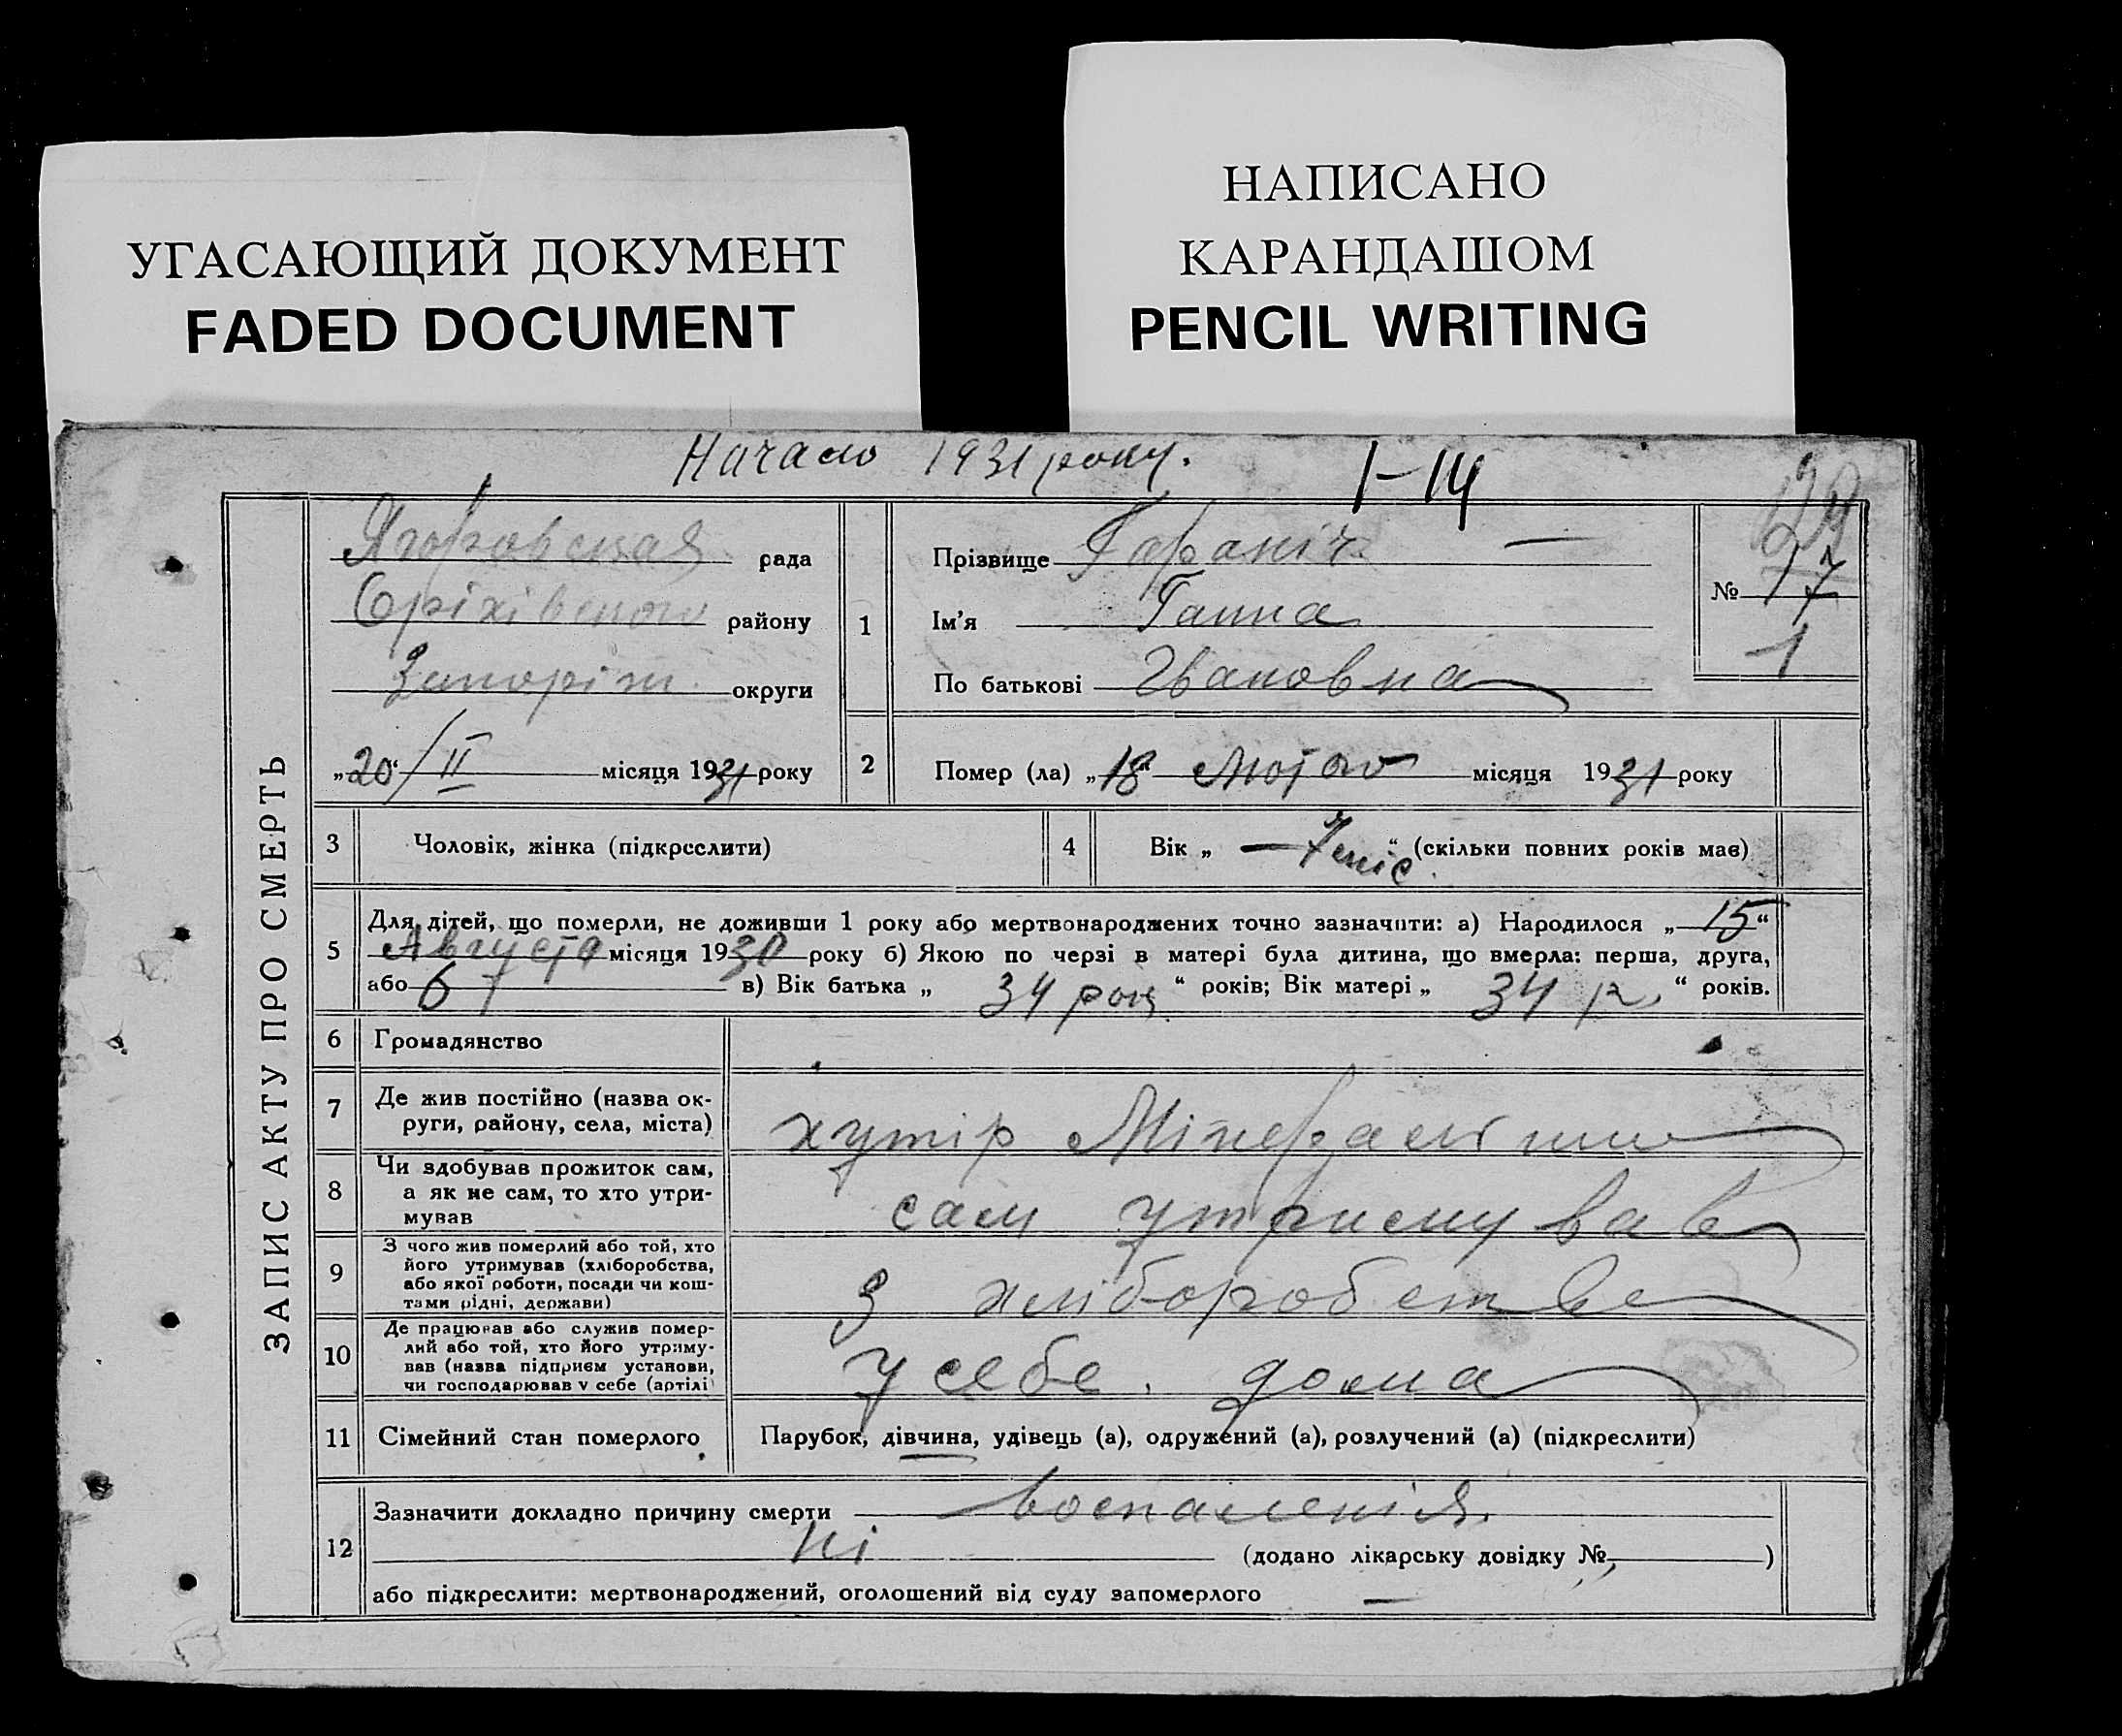 НАПИСАНО
КАРАНДАШОМ
PENCIL WRITING
УГАСАЮЩИЙ ДОКУМЕНТ
FADED DOCUMENT
Начало 1931 року.
1-14
ЗАПИС АКТУ ПРО СМЕРТЬ
рада
Оріхівського району
Запоріж. округи
„20“/II місяця 1931 року
1
Прізвище Гараніч —
Ім'я Ганна
По батькові Івановна
№ 17
1
2
Помер (ла) „18“ Лютого місяця 1931 року
3
Чоловік, жінка (підкреслити)
4
Вік „ — 7 міс. “ (скільки повних років має)
5
Для дітей, що померли, не доживши 1 року або мертвонароджених точно зазначити: а) Народилося „15“
Августа місяця 1930 року б) Якою по черзі в матері була дитина, що вмерла: перша, друга,
або 6 в) Вік батька „ 34 рок “ років; Вік матері „ 34 р. “ років.
6
Громадянство
7
Де жив постійно (назва ок-
руги, району, села, міста)
хутір
8
Чи здобував прожиток сам,
а як не сам, то хто утри-
мував
сам утримував
9
З чого жив померлий або той, хто
його утримував (хліборобства,
або якої роботи, посади чи кош-
тами рідні, держави)
З хліборобства
10
Де працював або служив помер-
лий або той, хто його утриму-
вав (назва підприєм установи,
чи господарював у себе (артілі)
у себе. дома
11
Сімейний стан померлого
Парубок, дівчина, удівець (а), одружений (а), розлучений (а) (підкреслити)
12
Зазначити докладно причину смерти воспаленія.
ні (додано лікарську довідку №, )
або підкреслити: мертвонароджений, оголошений від суду запомерлого —